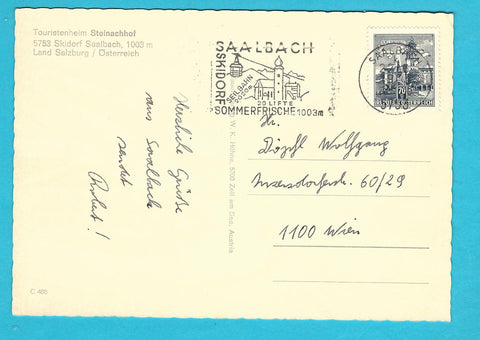 Touristenheim Steinachhof
5753 Skidorf Saalbach, 1003 m
Land Salzburg / Österreich
SAALBACH
SKIDORF
SEILBAHN
2000m
20 LIFTE
SOMMERFRISCHE 1003m
SAALBACH
Herzliche Grüße
aus Saalbach
sendet
Robert!
W. K. Höhne, 5700 Zell am See, Austria
Hr.
Döpfl Wolfgang
Inzersdorferstr. 60/29
1100 Wien
C 485